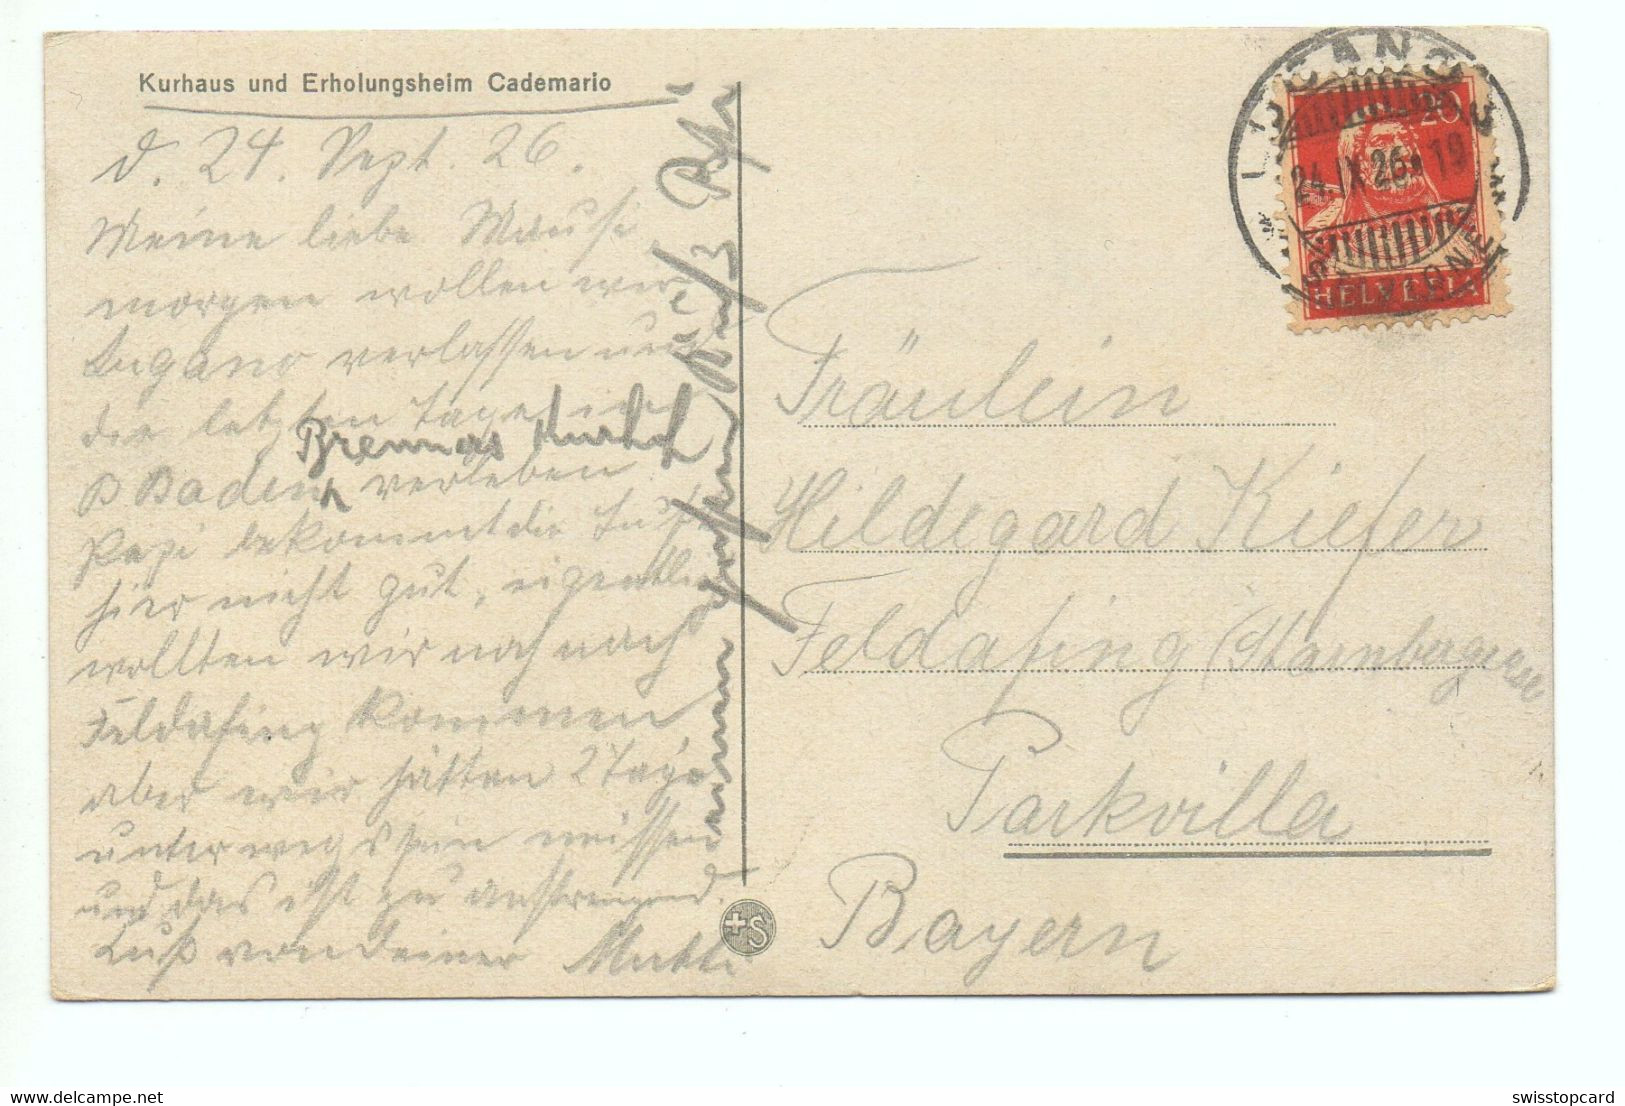 Kurhaus und Erholungsheim Cademario
d. 24. Sept. 26.
Meine liebe Mausi
morgen wollen wir
Lugano verlassen und
die letzten Tage in
B Baden verleben.
Brenners Kurhof
Papi bekommt die Luft
hier nicht gut, eigentlich
wollten wir noch nach
Feldafing kommen
aber wir hätten 2 Tage
unterwegs sein müssen
und das ist zu anstrengend.
Kuß von deiner Mutti
Fräulein
Hildegard Kiefer
Feldafing (Starnbergersee
Parkvilla
Bayern
LUGANO
24.IX.26. 19
20
HELVETIA
+S
swisstopcard